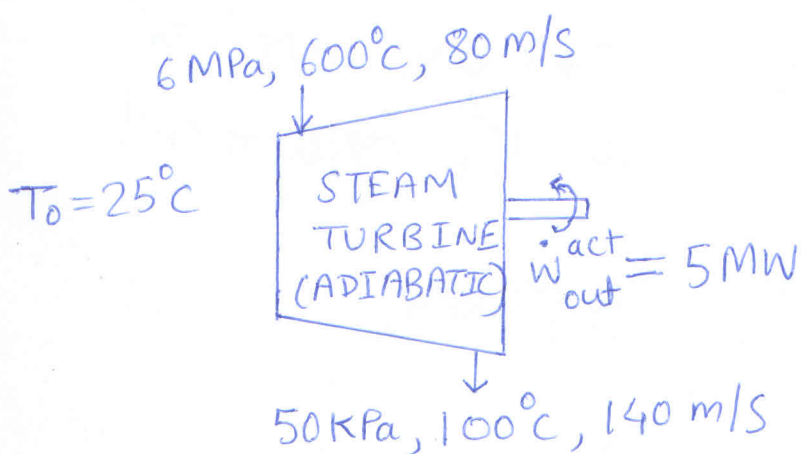 6 MPa, 600°C, 80 m/s
T₀ = 25°C
STEAM
TURBINE
(ADIABATIC)
ẇ act out = 5 MW
50 KPa, 100°C, 140 m/s